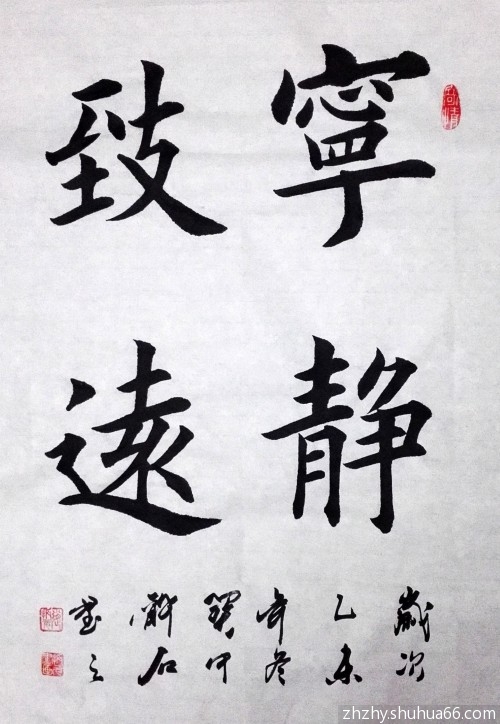 寧静
致遠
歲次
乙未
年冬
石
書之
zhzhy.shuhua66.com